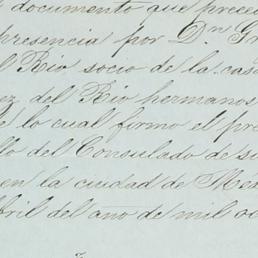 documento que preced
presencia por Dn Gr
l Rio socio de la casa
ez del Rio hermanos
e lo cual firmo el pre
llo del Consulado de s
en la ciudad de Me
bril del ano de mil oc